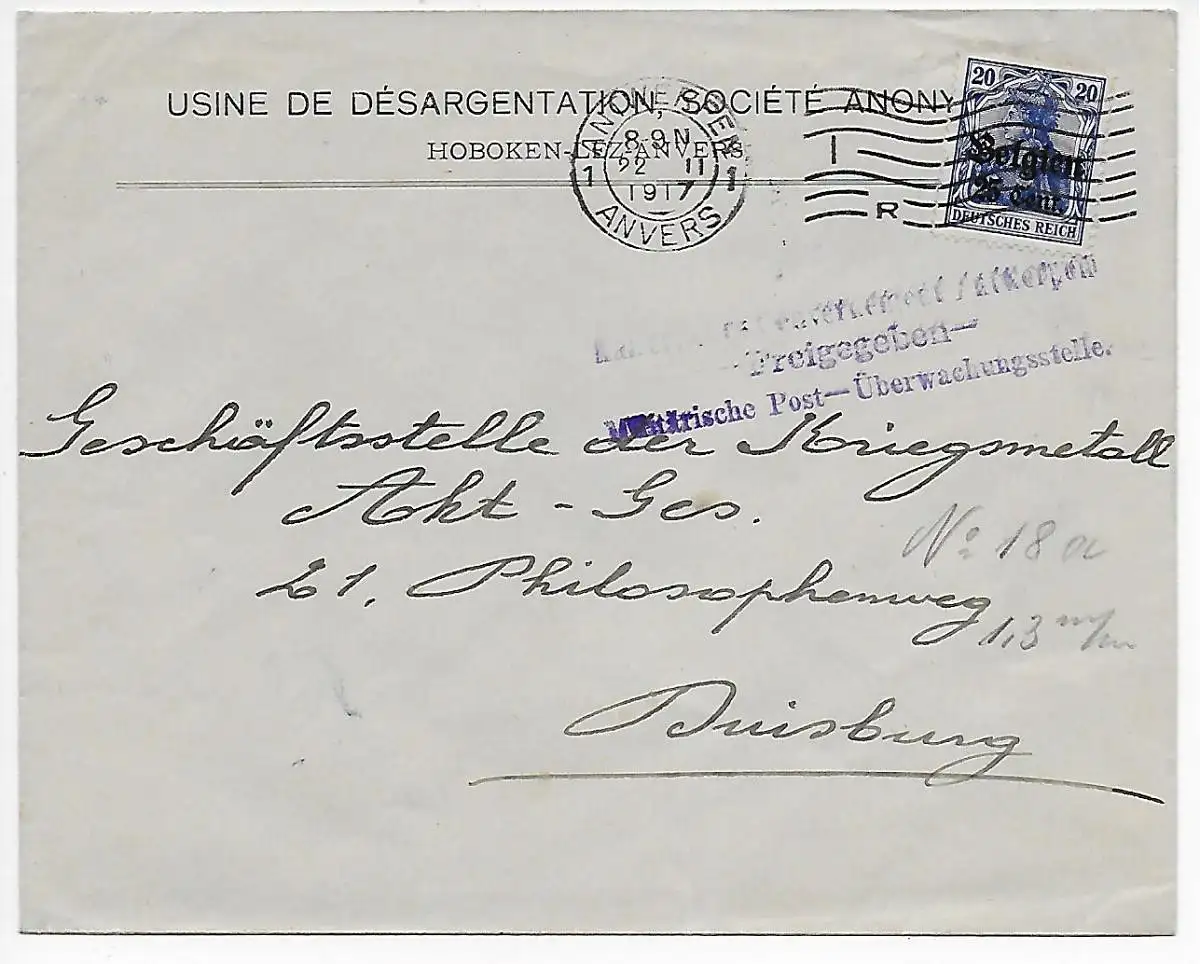 USINE DE DÉSARGENTATION, SOCIÉTÉ ANONY
HOBOKEN-LEZ-ANVERS
ANTWERPEN
8-9 N
22 II
1917
1 1
ANVERS
I
R
20 20
Belgien
25 Cent.
DEUTSCHES REICH
Antwerpen
-Freigegeben-
Militärische Post-Überwachungsstelle.
Geschäftsstelle der Kriegsmetall
Akt-Ges.
21, Philosophenweg
Duisburg
No 18 a
1,3 m/m